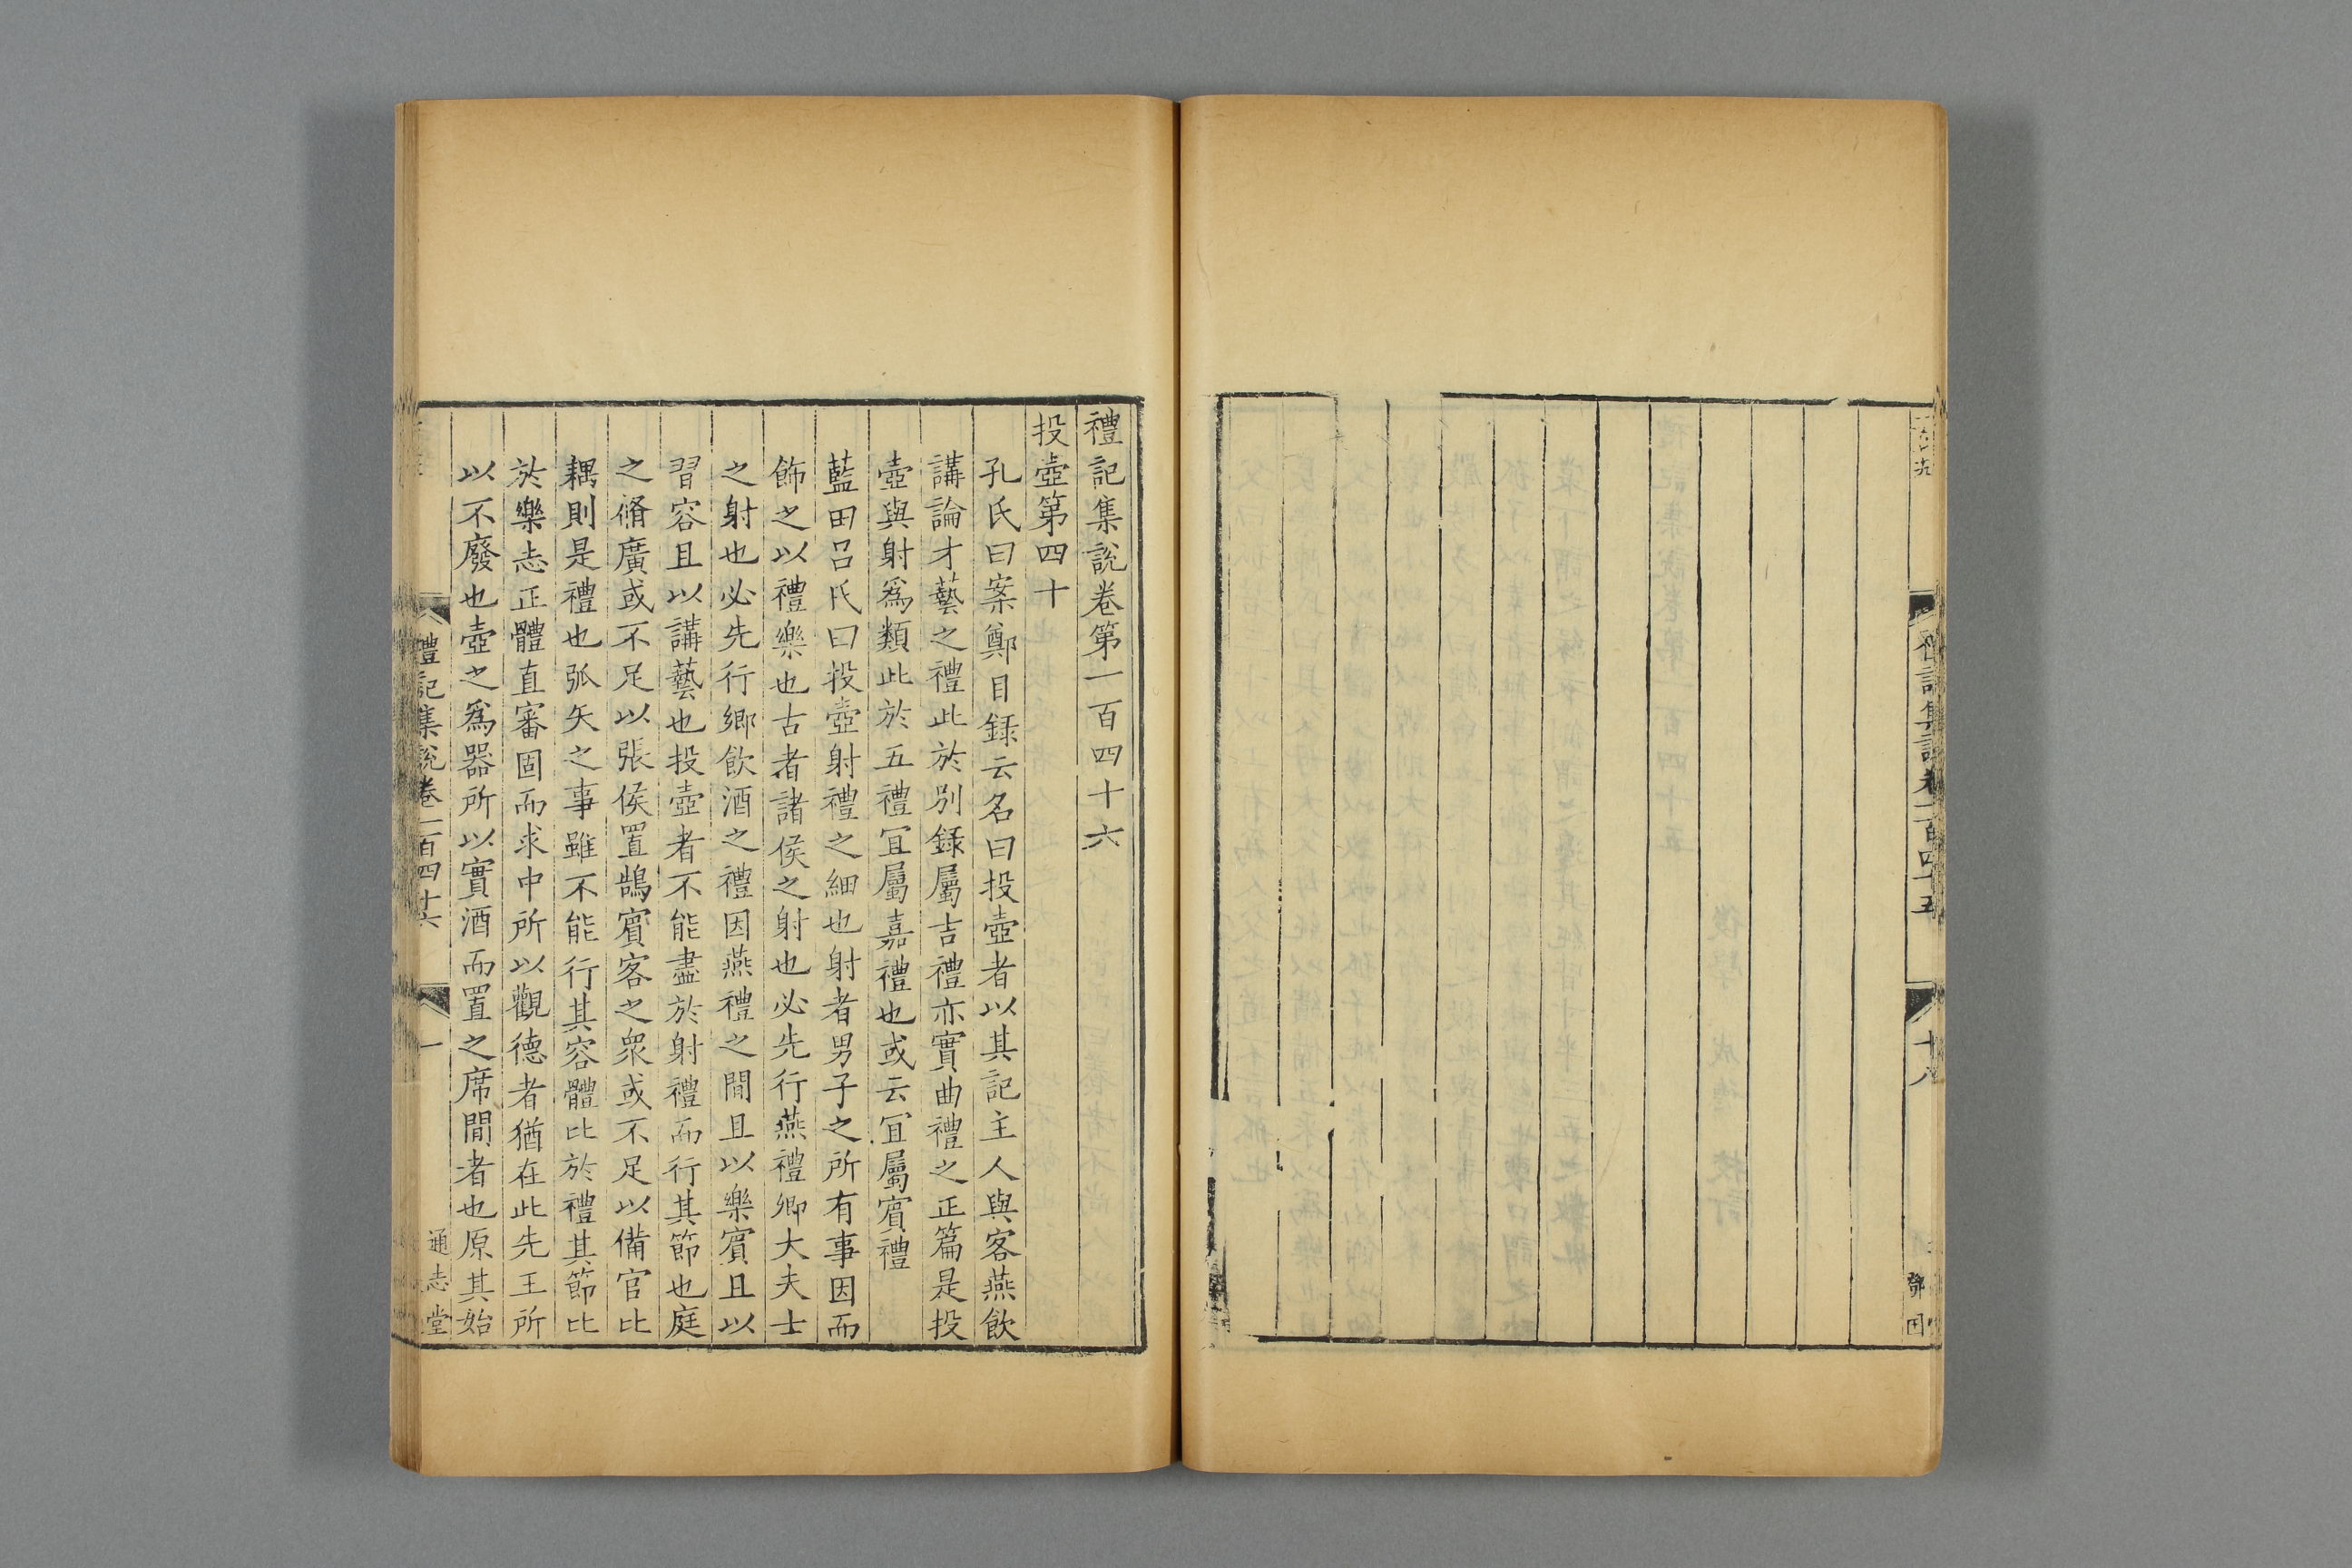 禮記集說卷一百四十五
十八
禮記集說卷第一百四十六
投壺第四十
孔氏曰案鄭目録云名曰投壺者以其記主人與客燕飲
講論才藝之禮此於別録屬吉禮亦實曲禮之正篇是投
壺與射爲類此於五禮宜屬嘉禮也或云宜屬賓禮
藍田呂氏曰投壺射禮之細也射者男子之所有事因而
飾之以禮樂也古者諸侯之射也必先行燕禮卿大夫士
之射也必先行鄉飲酒之禮因燕禮之間且以樂賓且以
習容且以講藝也投壺者不能盡於射禮而行其節也庭
之脩廣或不足以張侯置鵠賓客之衆或不足以備官比
耦則是禮也弧矢之事雖不能行其容體比於禮其節比
於樂志正體直審固而求中所以觀德者猶在此先王所
以不廢也壺之爲器所以實酒而置之席間者也原其始
禮記集說卷一百四十六
一
通志堂